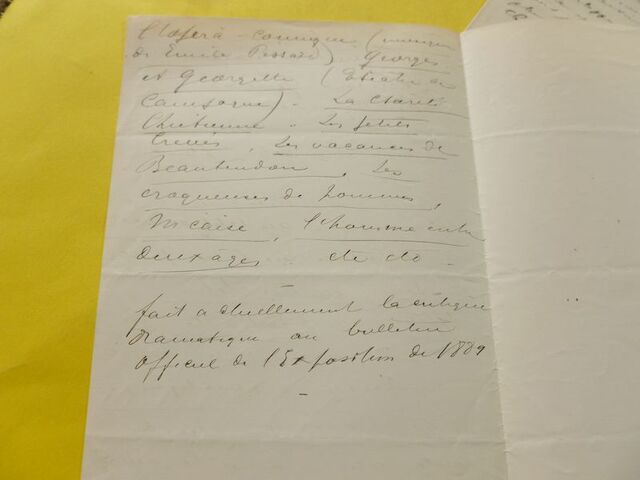 l'opéra-comique (musique
de Emile Pessard) Georges
et Georgette (
) - La Charité
Chrétienne - Les petits
, Les vacances de
Beautendon, Les
croqueuses de pommes,
Nicaise, l'homme entre
deux âges etc etc -
fait actuellement la critique
dramatique au bulletin
officiel de l'Exposition de 1889